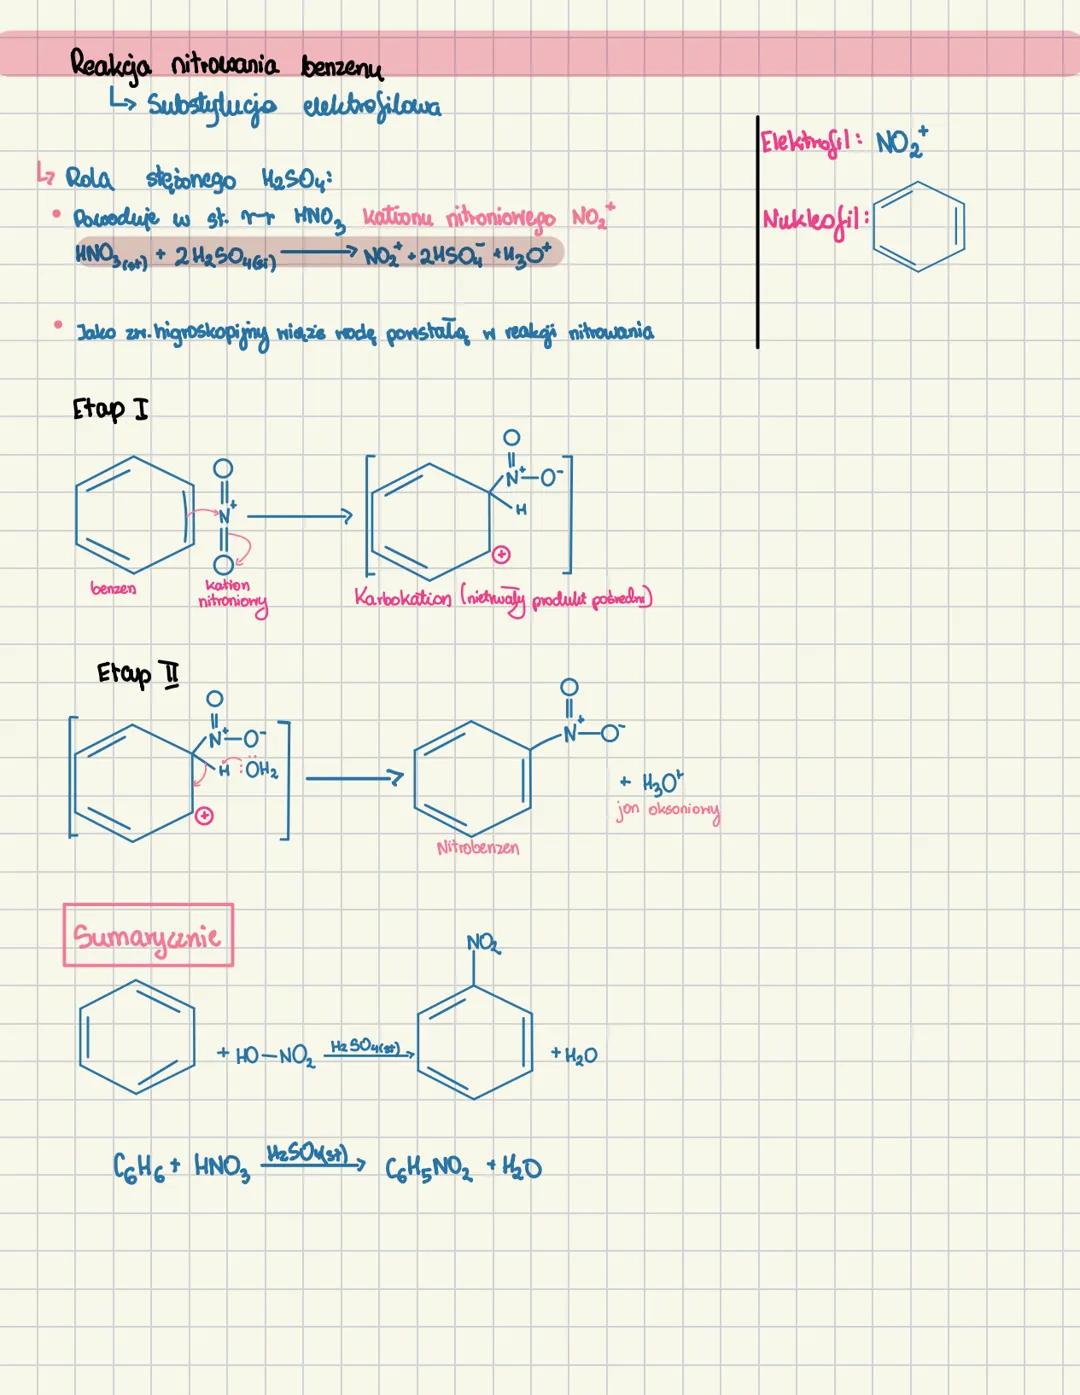 Reakcja nitrowania benzenu
↳ Substytucja elektrofilowa
Elektrofil: NO₂⁺
Nukleofil:
↳ Rola stężonego H₂SO₄:
• Powoduje w st. r-r HNO₃ kationu nitroniowego NO₂⁺
HNO₃(st) + 2H₂SO₄(st) → NO₂⁺ + 2HSO₄⁻ + H₃O⁺
• Jako zw. higroskopijny wiąże wodę powstałą w reakcji nitrowania
Etap I
O
O
N⁺
O
N⁺—O⁻
H
⊕
benzen
kation
nitroniowy
Karbokation (nietrwały produkt pośredni)
Etap II
O
N⁺—O⁻
H :OH₂
⊕
O
N⁺—O⁻
+ H₃O⁺
jon oksoniowy
Nitrobenzen
Sumarycznie
NO₂
+ HO—NO₂ H₂SO₄(st)→ + H₂O
C₆H₆ + HNO₃ H₂SO₄(st)→ C₆H₅NO₂ + H₂O